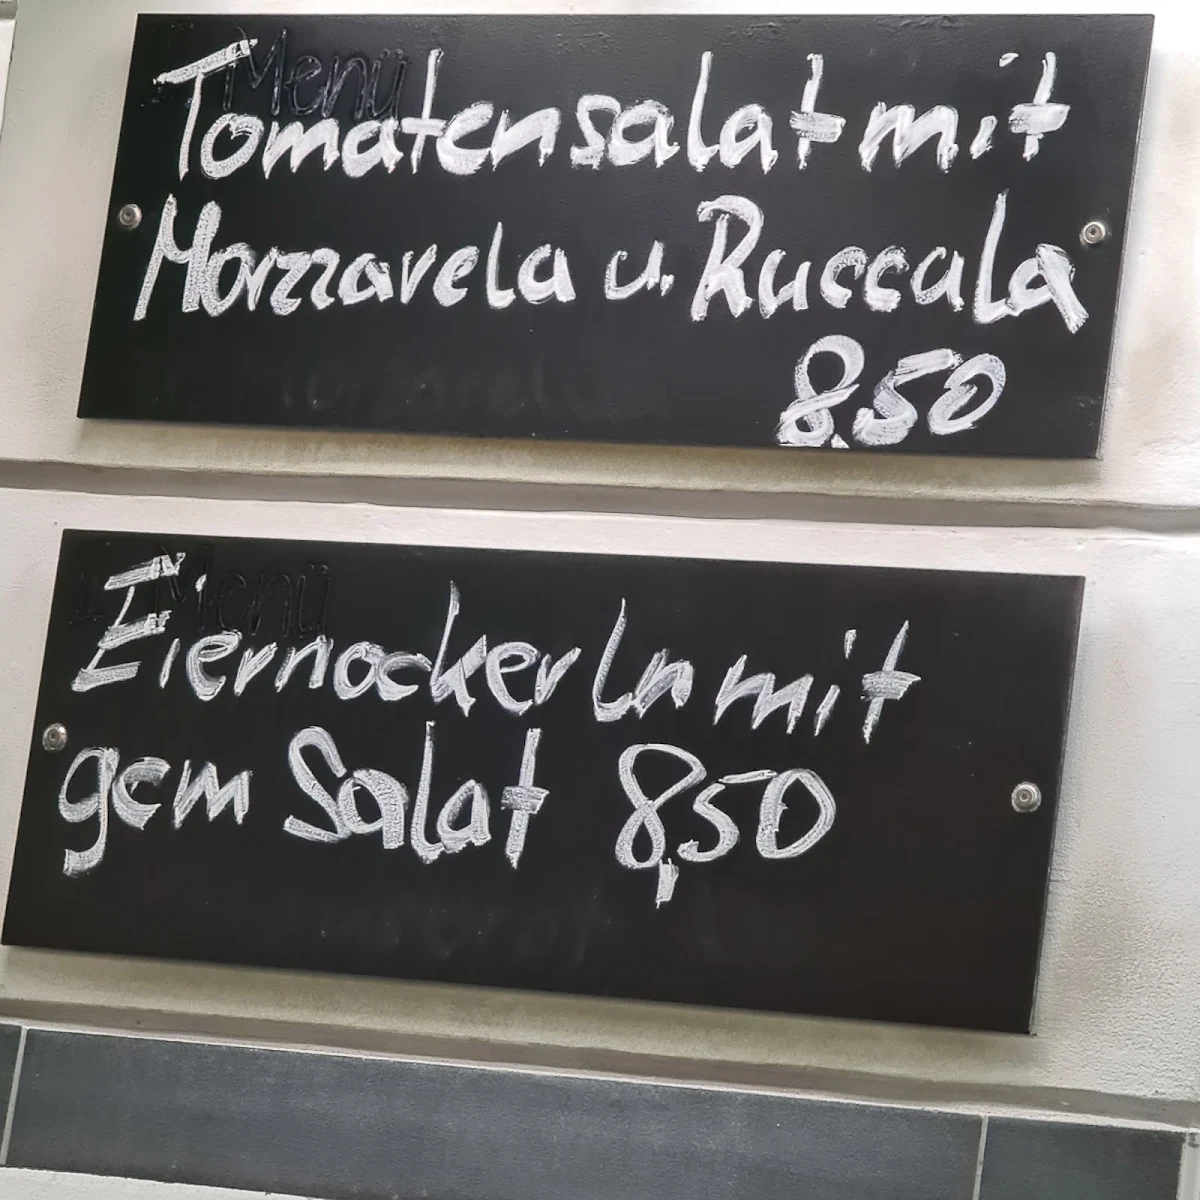 Menü
Tomatensalat mit
Morzzarela u. Ruccala
8,50
Menü
Eiernockerln mit
gem Salat 8,50